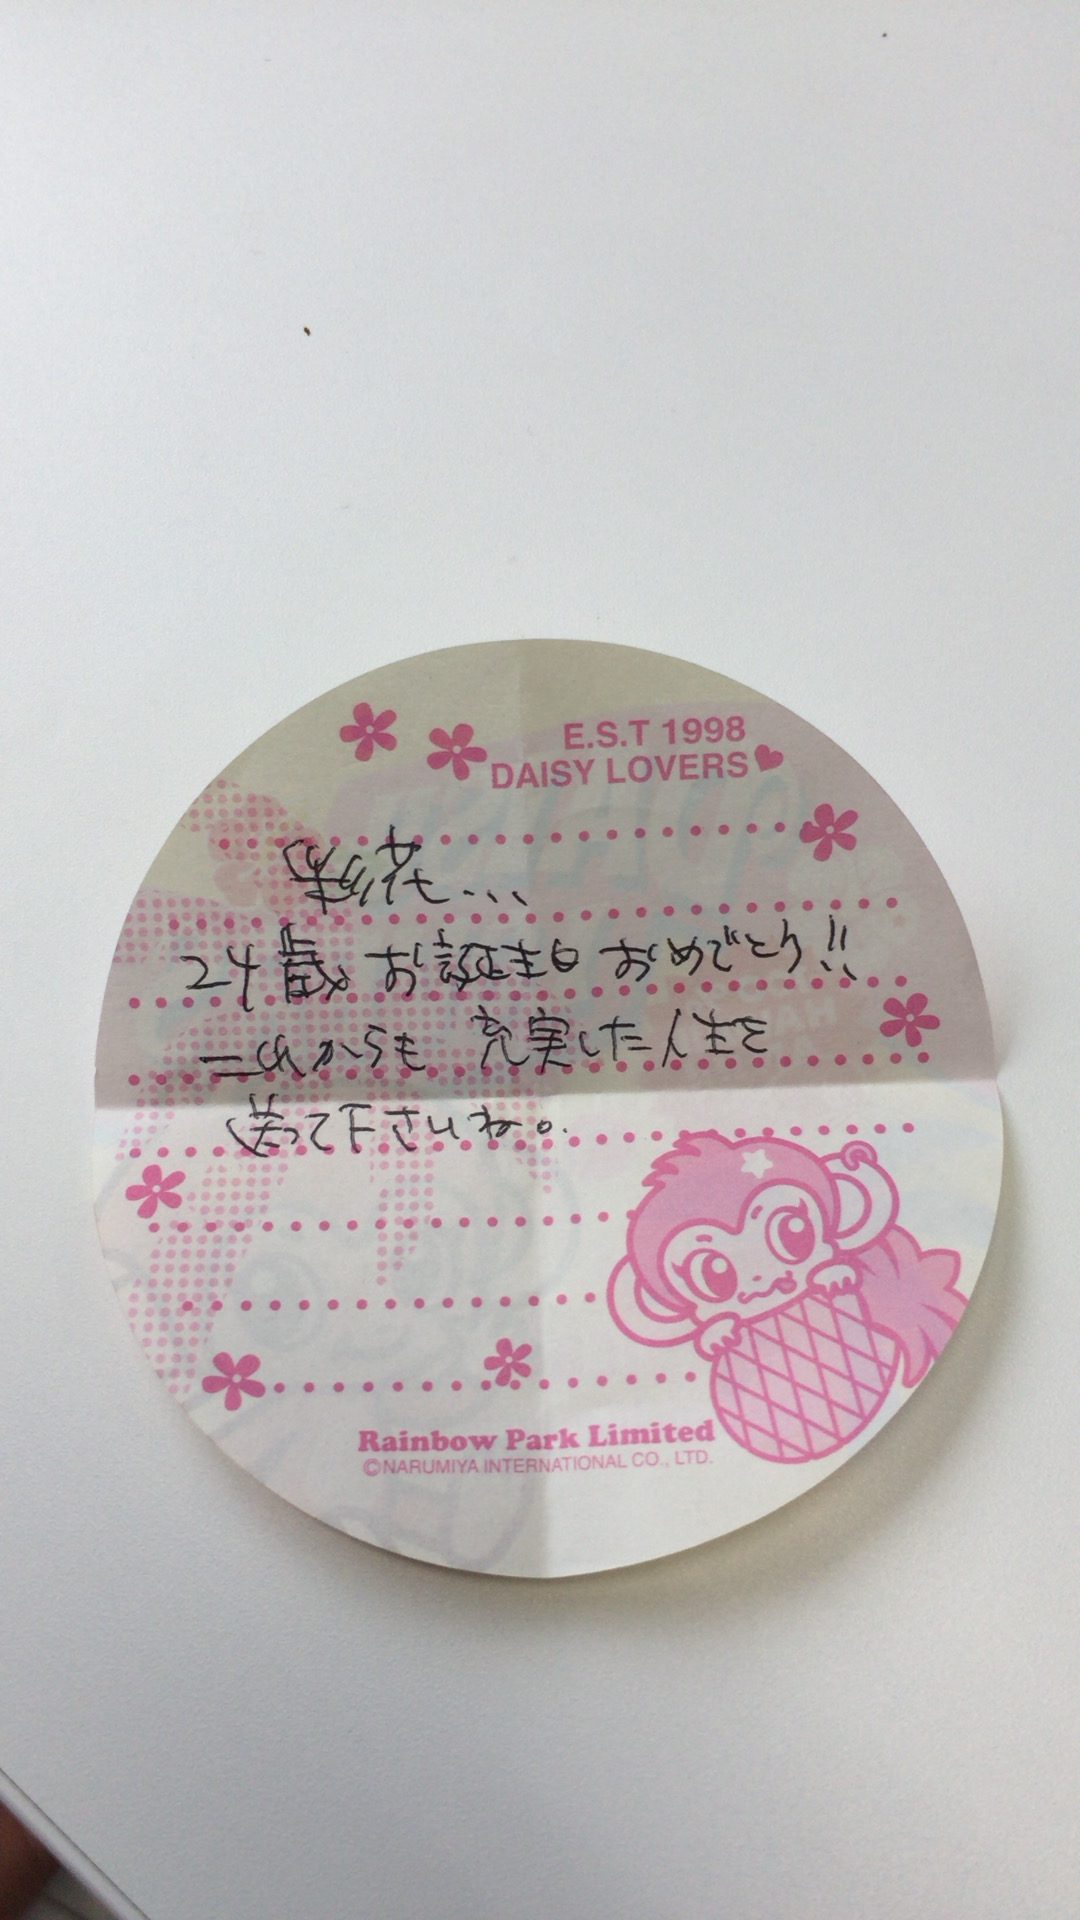 E.S.T 1998
DAISY LOVERS
彩花...
24歳 お誕生日 おめでとう!!
これからも 充実した人生を
送って下さいね。
Rainbow Park Limited
©NARUMIYA INTERNATIONAL CO., LTD.